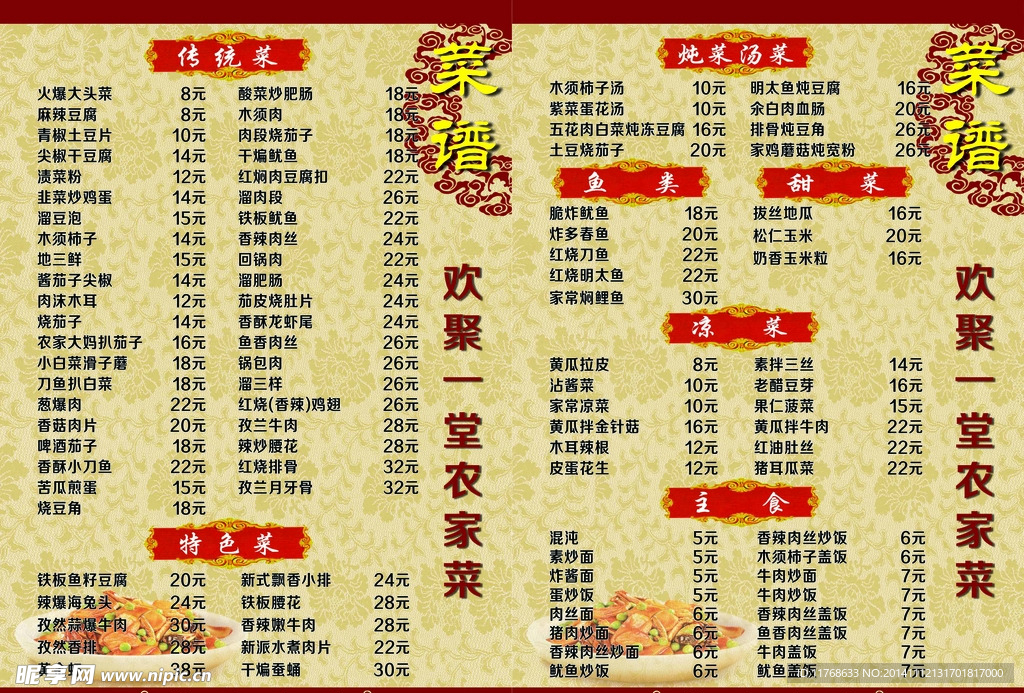 传统菜
火爆大头菜 8元 酸菜炒肥肠 18元
麻辣豆腐 8元 木须肉 18元
青椒土豆片 10元 肉段烧茄子 18元
尖椒干豆腐 14元 干煸鱿鱼 18元
渍菜粉 12元 红焖肉豆腐扣 22元
韭菜炒鸡蛋 14元 溜肉段 26元
溜豆泡 15元 铁板鱿鱼 22元
木须柿子 14元 香辣肉丝 24元
地三鲜 15元 回锅肉 22元
酱茄子尖椒 14元 溜肥肠 24元
肉沫木耳 12元 茄皮烧肚片 24元
烧茄子 14元 香酥龙虾尾 24元
农家大妈扒茄子 16元 鱼香肉丝 26元
小白菜滑子蘑 18元 锅包肉 26元
刀鱼扒白菜 18元 溜三样 26元
葱爆肉 22元 红烧(香辣)鸡翅 26元
香菇肉片 20元 孜兰牛肉 28元
啤酒茄子 18元 辣炒腰花 28元
香酥小刀鱼 22元 红烧排骨 32元
苦瓜煎蛋 15元 孜兰月牙骨 32元
烧豆角 18元
特色菜
铁板鱼籽豆腐 20元 新式飘香小排 24元
辣爆海兔头 24元 铁板腰花 28元
孜然蒜爆牛肉 30元 香辣嫩牛肉 28元
孜然香排 28元 新派水煮肉片 22元
38元 干煸蚕蛹 30元
菜谱
欢聚一堂农家菜
炖菜汤菜
木须柿子汤 10元 明太鱼炖豆腐 16元
紫菜蛋花汤 10元 汆白肉血肠 20元
五花肉白菜炖冻豆腐 16元 排骨炖豆角 26元
土豆烧茄子 20元 家鸡蘑菇炖宽粉 26元
鱼类 甜菜
脆炸鱿鱼 18元 拔丝地瓜 16元
炸多春鱼 20元 松仁玉米 20元
红烧刀鱼 22元 奶香玉米粒 16元
红烧明太鱼 22元
家常焖鲤鱼 30元
凉菜
黄瓜拉皮 8元 素拌三丝 14元
沾酱菜 10元 老醋豆芽 16元
家常凉菜 10元 果仁菠菜 15元
黄瓜拌金针菇 16元 黄瓜拌牛肉 22元
木耳辣根 12元 红油肚丝 22元
皮蛋花生 12元 猪耳瓜菜 22元
主食
混沌 5元 香辣肉丝炒饭 6元
素炒面 5元 木须柿子盖饭 6元
炸酱面 5元 牛肉炒面 7元
蛋炒饭 5元 牛肉炒饭 7元
肉丝面 6元 香辣肉丝盖饭 7元
猪肉炒面 6元 鱼香肉丝盖饭 7元
香辣肉丝炒面 6元 牛肉盖饭 7元
鱿鱼炒饭 6元 鱿鱼盖饭 7元
菜谱
欢聚一堂农家菜
昵享网 www.nipic.cn